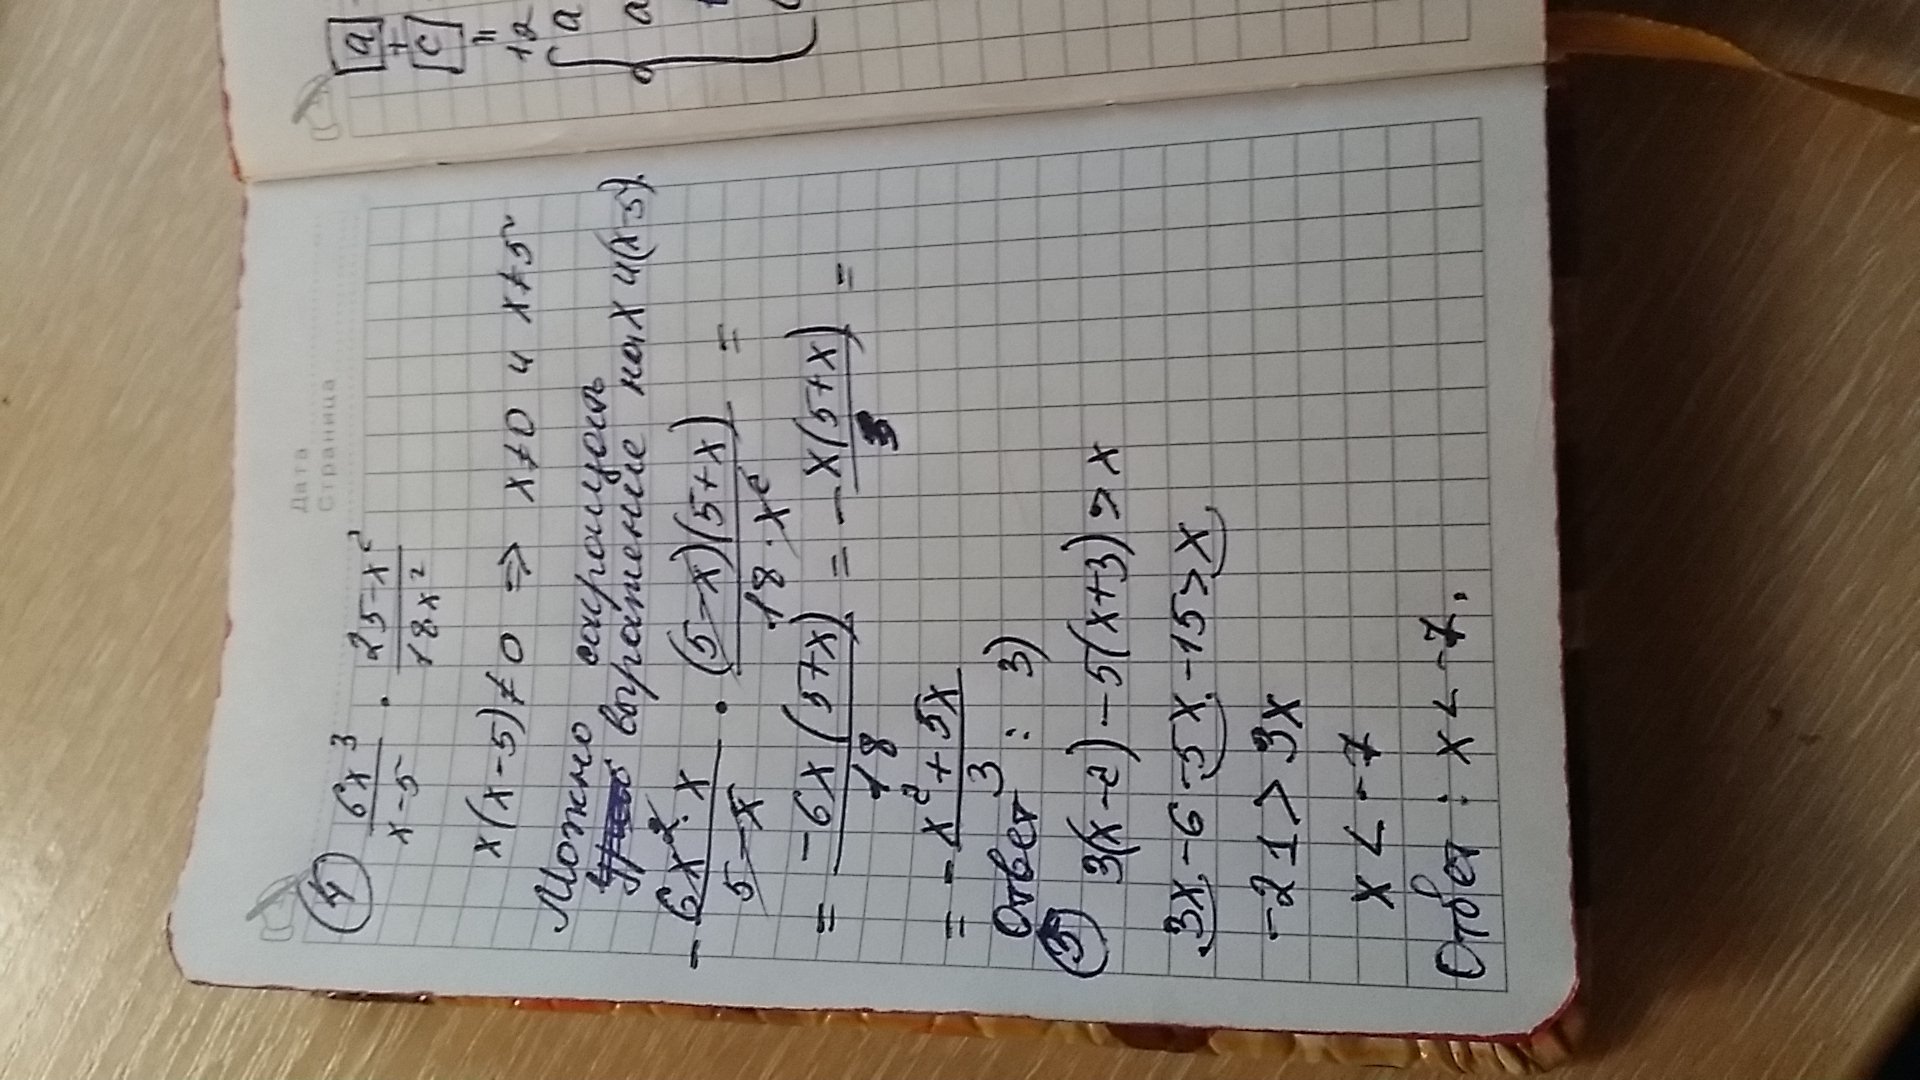 Дата
Страница
④ 6x³/(x-5) · (25-x²)/(18x²)
x(x-5)≠0 => x≠0 и x≠5
Можно сократить
выражение на x и (x-5).
- (6x²·x)/(5-x) · ((5-x)(5+x))/(18·x²) =
= (-6x(5+x))/18 = - (x(5+x))/3 =
= - (x²+5x)/3
Ответ: 3)
⑤ 3(x-2)-5(x+3)>x
3x-6-5x-15>x
-21>3x
x<-7
Ответ: x<-7.
[a]
+
[c]
=
12
a
a